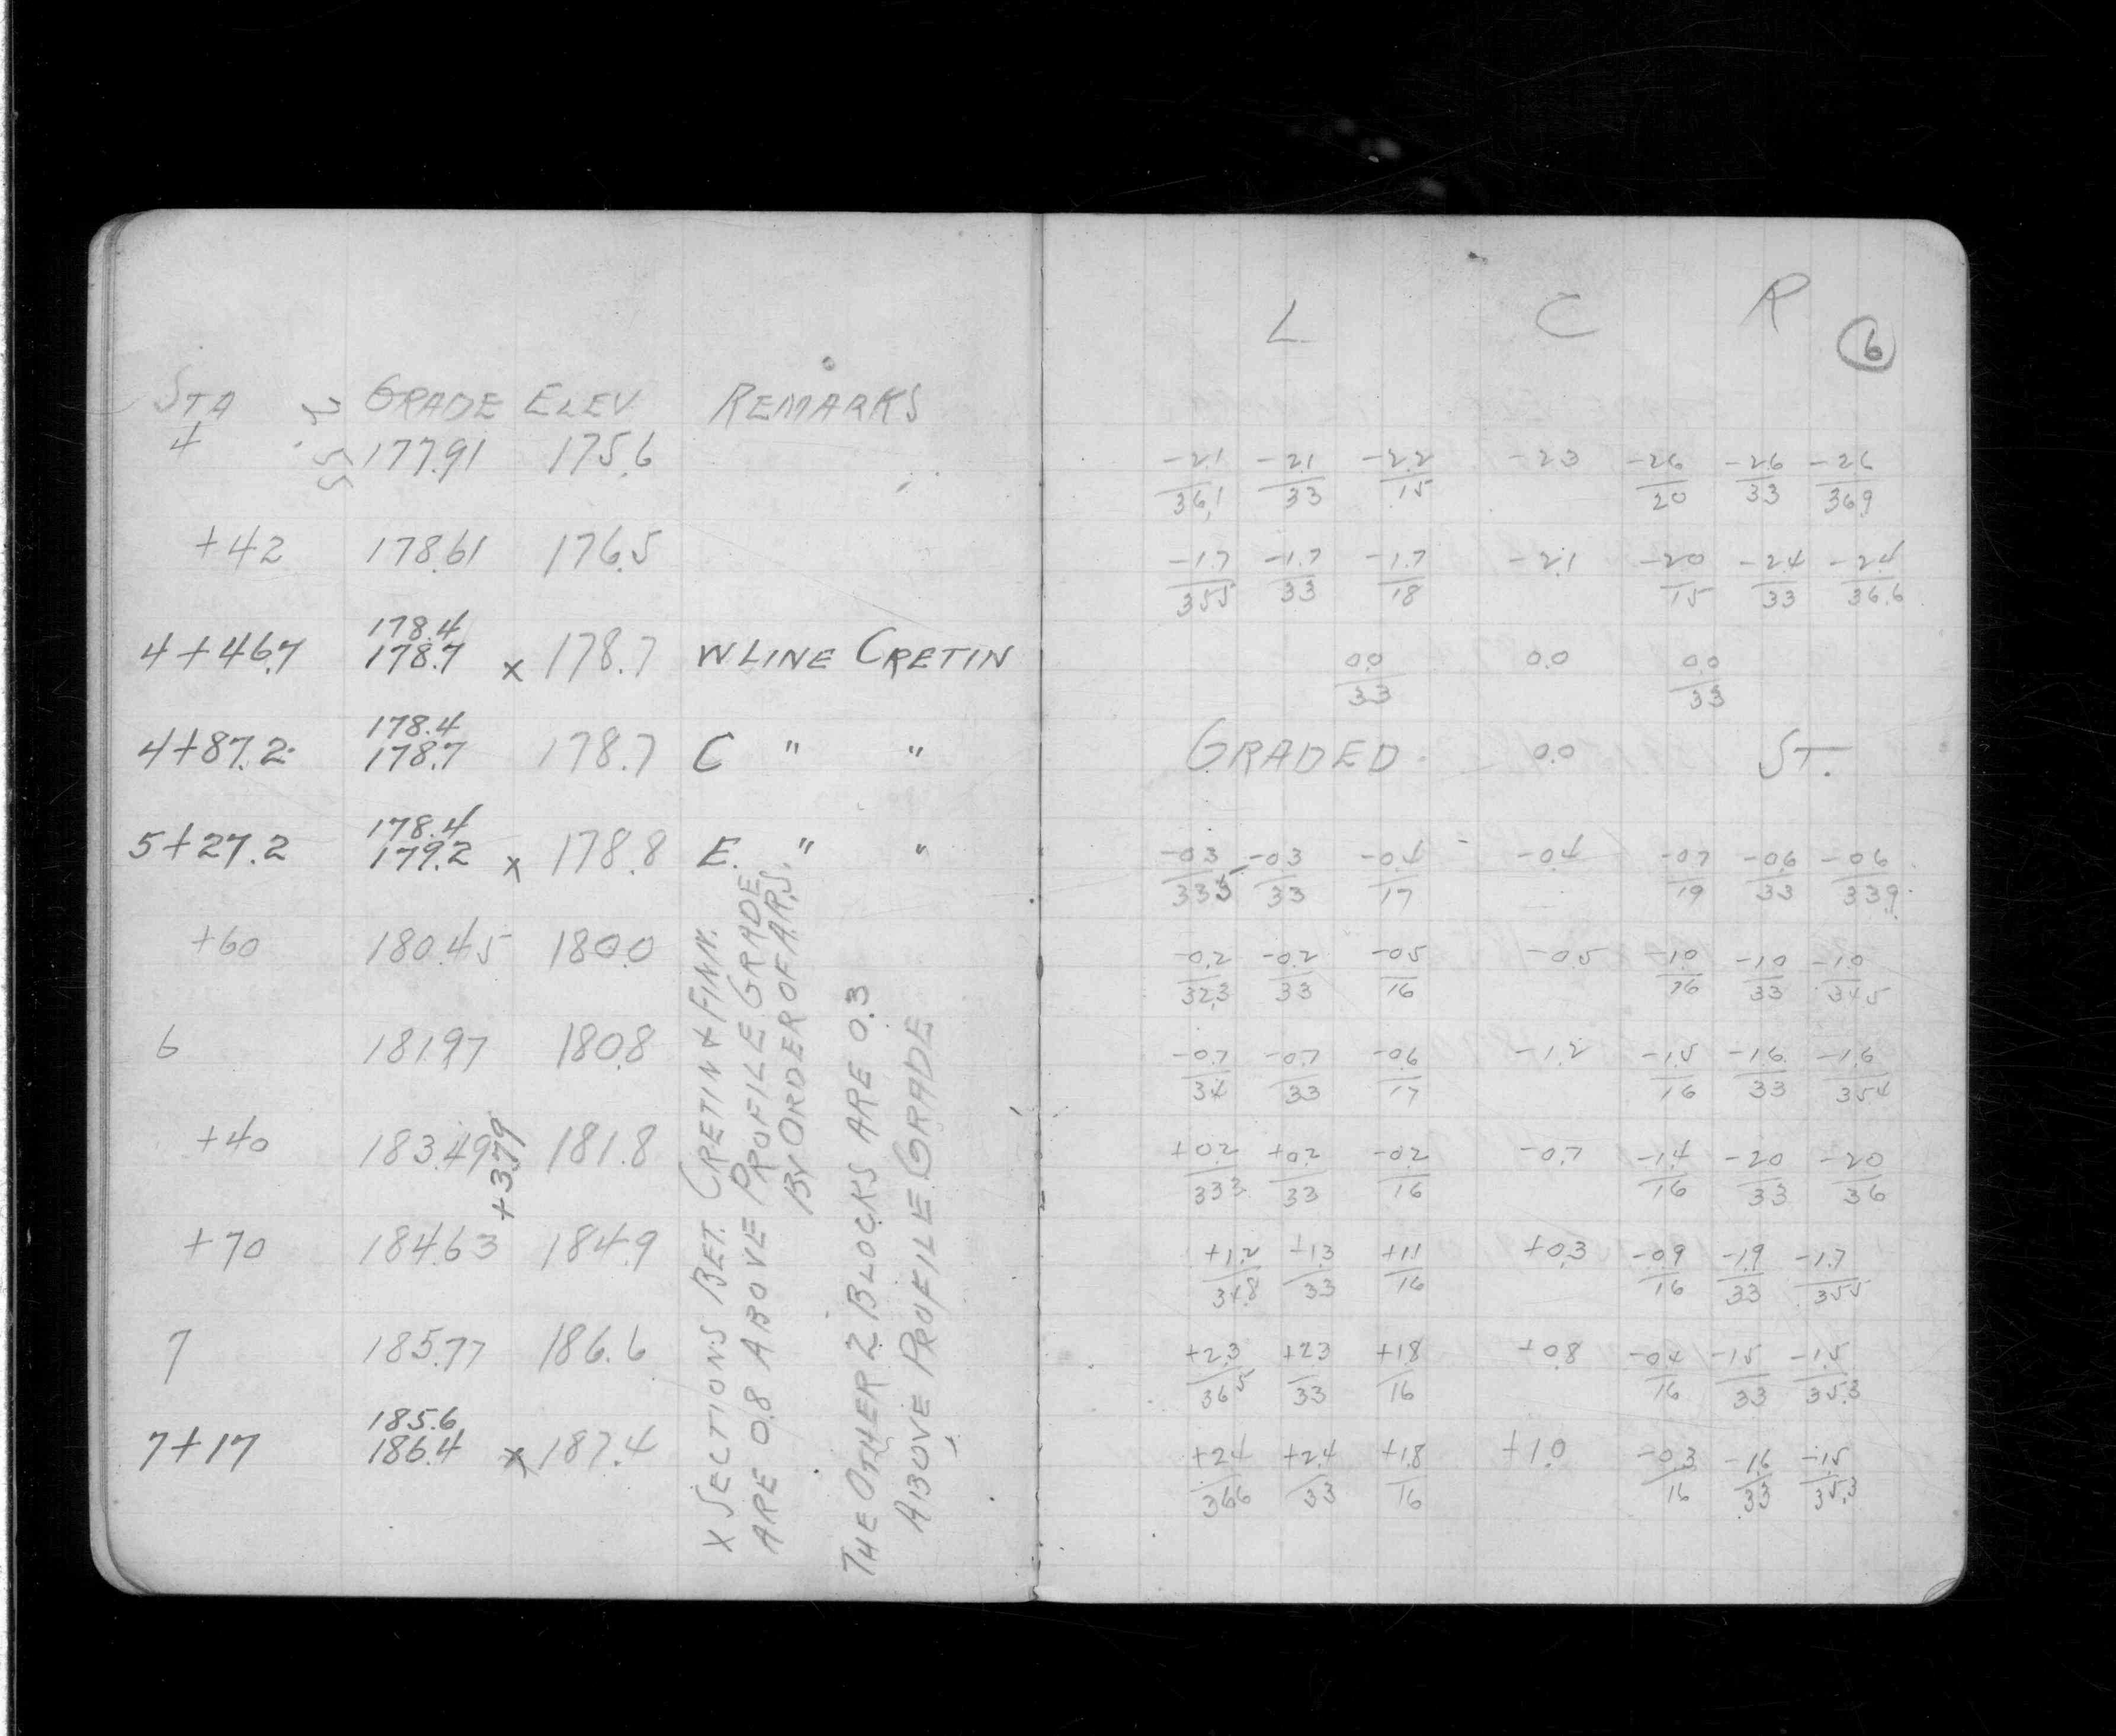 STA GRADE ELEV REMARKS
4 177.91 175.6
+42 178.61 176.5
178.4
4+46.7 178.7 x 178.7 W LINE CRETIN
178.4
4+87.2 178.7 178.7 C " "
178.4
5+27.2 179.2 x 178.8 E. " "
+60 180.45 180.0
6 181.97 180.8
+40 183.49 181.8
+3.79
+70 184.63 184.9
7 185.77 186.6
185.6
7+17 186.4 x 187.4
X SECTIONS BET. CRETIN & FINN.
ARE 0.8 ABOVE PROFILE GRADE
BY ORDER OF A.R.S.
THE OTHER 2 BLOCKS ARE 0.3
ABOVE PROFILE GRADE
L C R 6
-2.1 -2.1 -2.2 -2.3 -2.6 -2.6 -2.6
36.1 33 15 20 33 36.9
-1.7 -1.7 -1.7 -2.1 -2.0 -2.4 -2.4
35.5 33 18 15 33 36.6
0.0 0.0 0.0
33 33
GRADED 0.0 ST.
-0.3 -0.3 -0.4 -0.4 -0.7 -0.6 -0.6
33.5 33 17 19 33 33.9
-0.2 -0.2 -0.5 -0.5 -1.0 -1.0 -1.0
32.3 33 16 16 33 34.5
-0.7 -0.7 -0.6 -1.2 -1.5 -1.6 -1.6
34 33 17 16 33 35.4
+0.2 +0.2 -0.2 -0.7 -1.4 -2.0 -2.0
33.3 33 16 16 33 36
+1.2 +1.3 +1.1 +0.3 -0.9 -1.9 -1.7
34.8 33 16 16 33 35.5
+2.3 +2.3 +1.8 +0.8 -0.4 -1.5 -1.5
36.5 33 16 16 33 35.3
+2.4 +2.4 +1.8 +1.0 -0.3 -1.6 -1.5
36.6 33 16 16 33 35.3